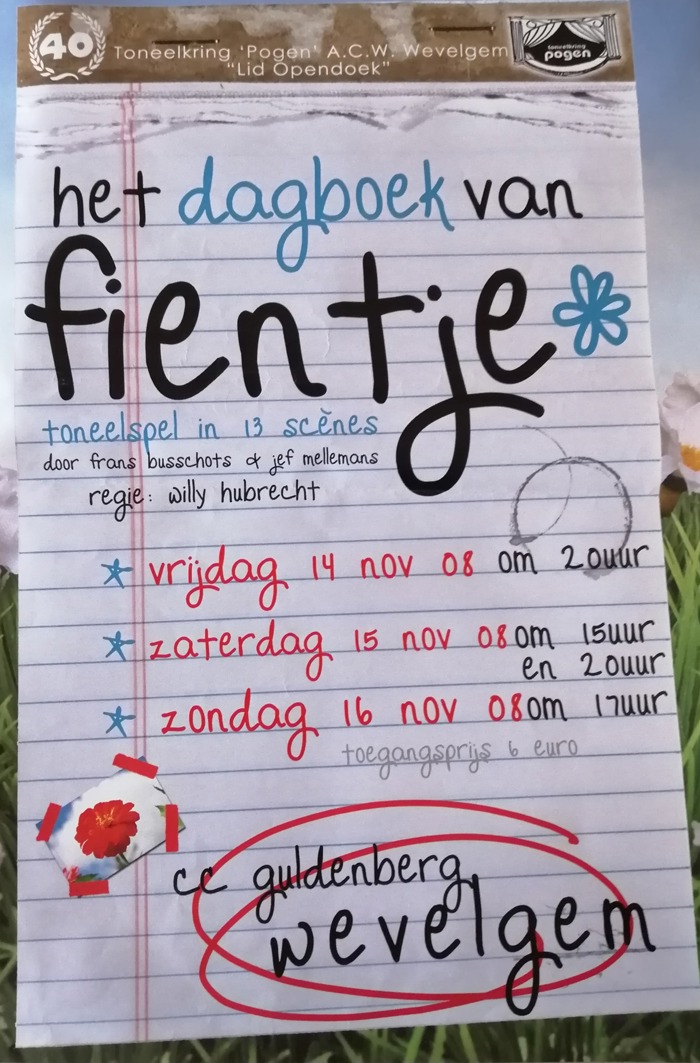 40
Toneelkring 'Pogen' A.C.W. Wevelgem
"Lid Opendoek"
toneelkring
pogen
het dagboek van
fientje
toneelspel in 13 scènes
door frans busschots & jef mellemans
regie: willy hubrecht
vrijdag 14 nov 08 om 20uur
zaterdag 15 nov 08 om 15uur
en 20uur
zondag 16 nov 08 om 17uur
toegangsprijs 6 euro
cc guldenberg
wevelgem